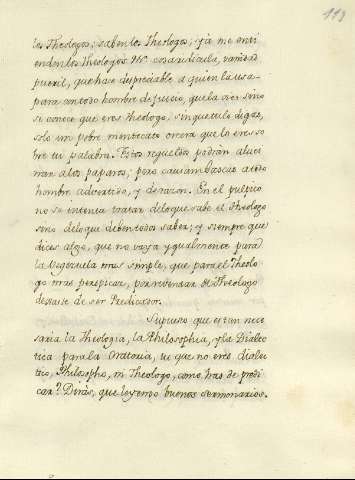 113
los Theologos; saben los Theologos; ya me enti
enden los Theologos &c. cosa ridicula, vanidad
pueril, que hace despreciable a quien la usa-
para con todo hombre de juicio, que la oie: sino
se conoce que eres Theologo, sin que tu lo digas,
solo un pobre mentecato creera que lo eres so-
bre tu palabra. Estos regueldos podrán aluci
nar a los papanas; pero causan bascas a todo
hombre advertido, y de razon. En el pulpito
no se intenta tratar de lo que sabe el Theologo
sino de lo que deben todos saber; y siempre que
dices algo, que no vaya ygualmente para
la Vegezuela mas simple, que para el Theolo-
go mas perspicaz, por ostentar el Theologo
dexaste de ser Predicador.
Supuesto que es tan nece
saria la Theologia, la Philosophia, y la Dialec
tica para la Oratoria, tu que no eres dialec
tico, Philosopho, ni Theologo, como has de predi
car? Dirás, que leyendo buenos sermonarios.